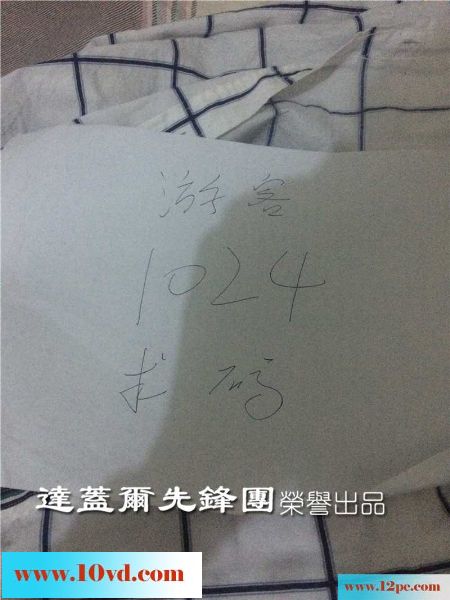 游客
1024
求码
達蓋爾先鋒團榮譽出品
www.10vd.com
www.12pe.com